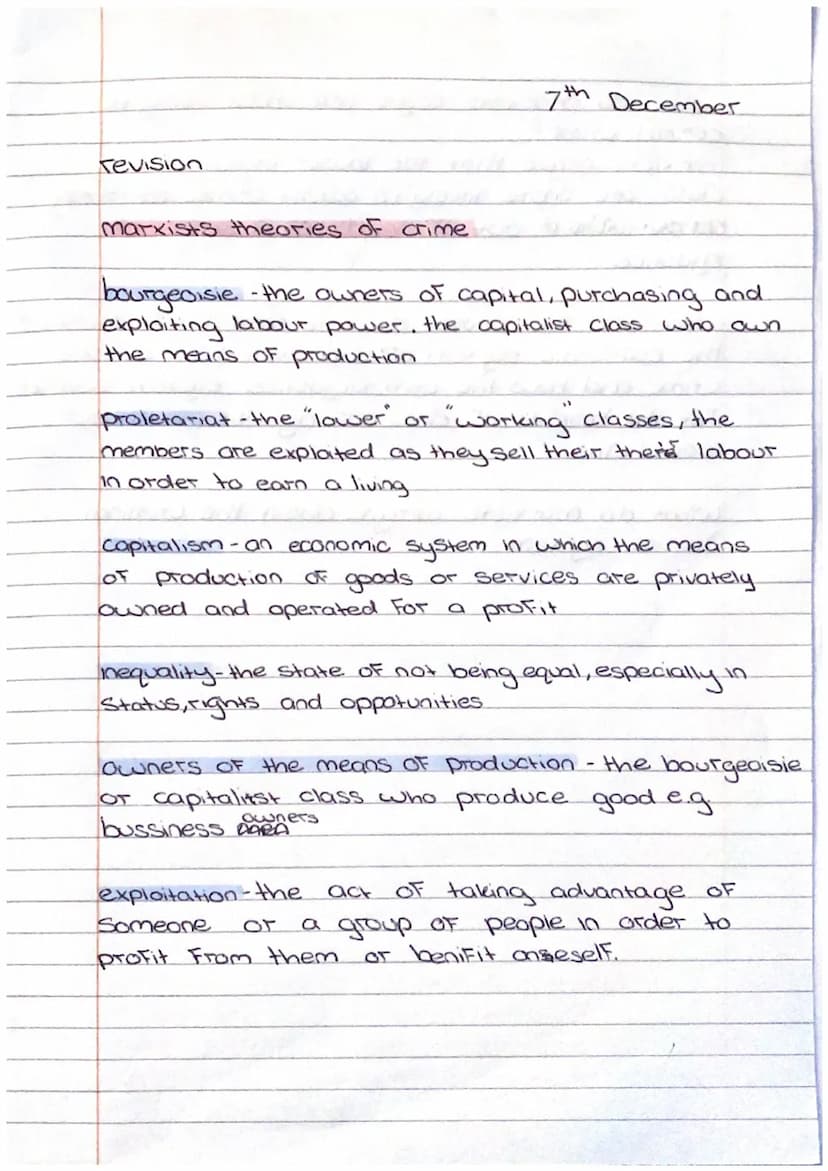 7th December
revision
marxists theories of crime
bourgeoisie - the owners of capital, purchasing and
exploiting labour power. the capitalist class who own
the means of production
proletariat - the "lower" or "working" classes, the
members are exploited as they sell their there's labour
in order to earn a living
capitalism - an economic system in which the means
of production of goods or services are privately
owned and operated for a profit
inequality - the state of not being equal, especially in
status, rights and oppotunities
owners of the means of production - the bourgeoisie
or capitalist class who produce good e.g.
bussiness owners
exploitation - the act of taking advantage of
someone or a group of people in order to
profit from them or benifit oneself.